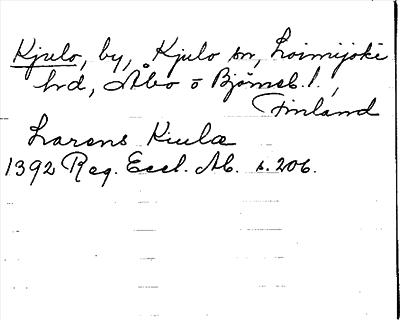 Kjulo, by, Kjulo sn, Loimijoki
hrd, Åbo o Björneb. l.,
Finland
Larens Kiula
1392 Reg. Eccl. Ab. s. 206.